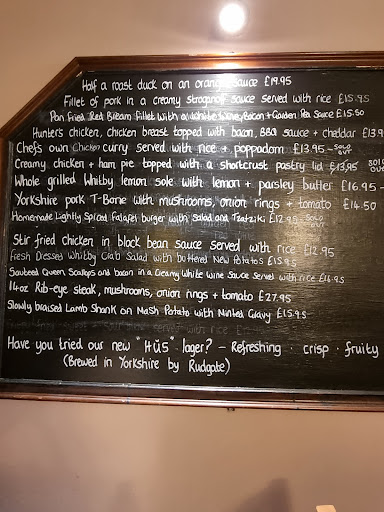 Half a roast duck on an orange sauce £19.95
Fillet of pork in a creamy stroganoff sauce served with rice £15.95
Pan fried Red Bream fillet with a White Wine, Bacon + Garden Pea Sauce £15.50
Hunters chicken, chicken breast topped with bacon, BBQ sauce + cheddar £13.9
Chefs own Chicken curry served with rice + poppadom £13.95 - SOLD OUT
Creamy chicken + ham pie topped with a shortcrust pastry lid £13.95 SOLD OUT
Whole grilled Whitby lemon sole with lemon + parsley butter £16.95 -
Yorkshire pork T-Bone with mushrooms, onion rings + tomato £14.50
Homemade Lightly Spiced Falafel burger with Salad and Tzatziki £12.95 - SOLD OUT
Stir fried chicken in black bean sauce served with rice £12.95
Fresh Dressed Whitby Crab Salad with buttered New Potatoes £15.95
Sauteed Queen Scallops and bacon in a Creamy White Wine Sauce Served with rice £16.95
14oz Rib-eye steak, mushrooms, onion rings + tomato £27.95
Slowly braised Lamb Shank on Mash Potato with Minted Gravy £15.95
Have you tried our new "HŬS" lager? - Refreshing · crisp · fruity
(Brewed in Yorkshire by Rudgate)